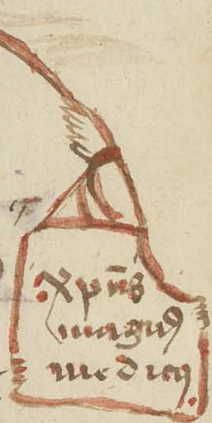 Xpūs
magnꝰ
medicꝰ